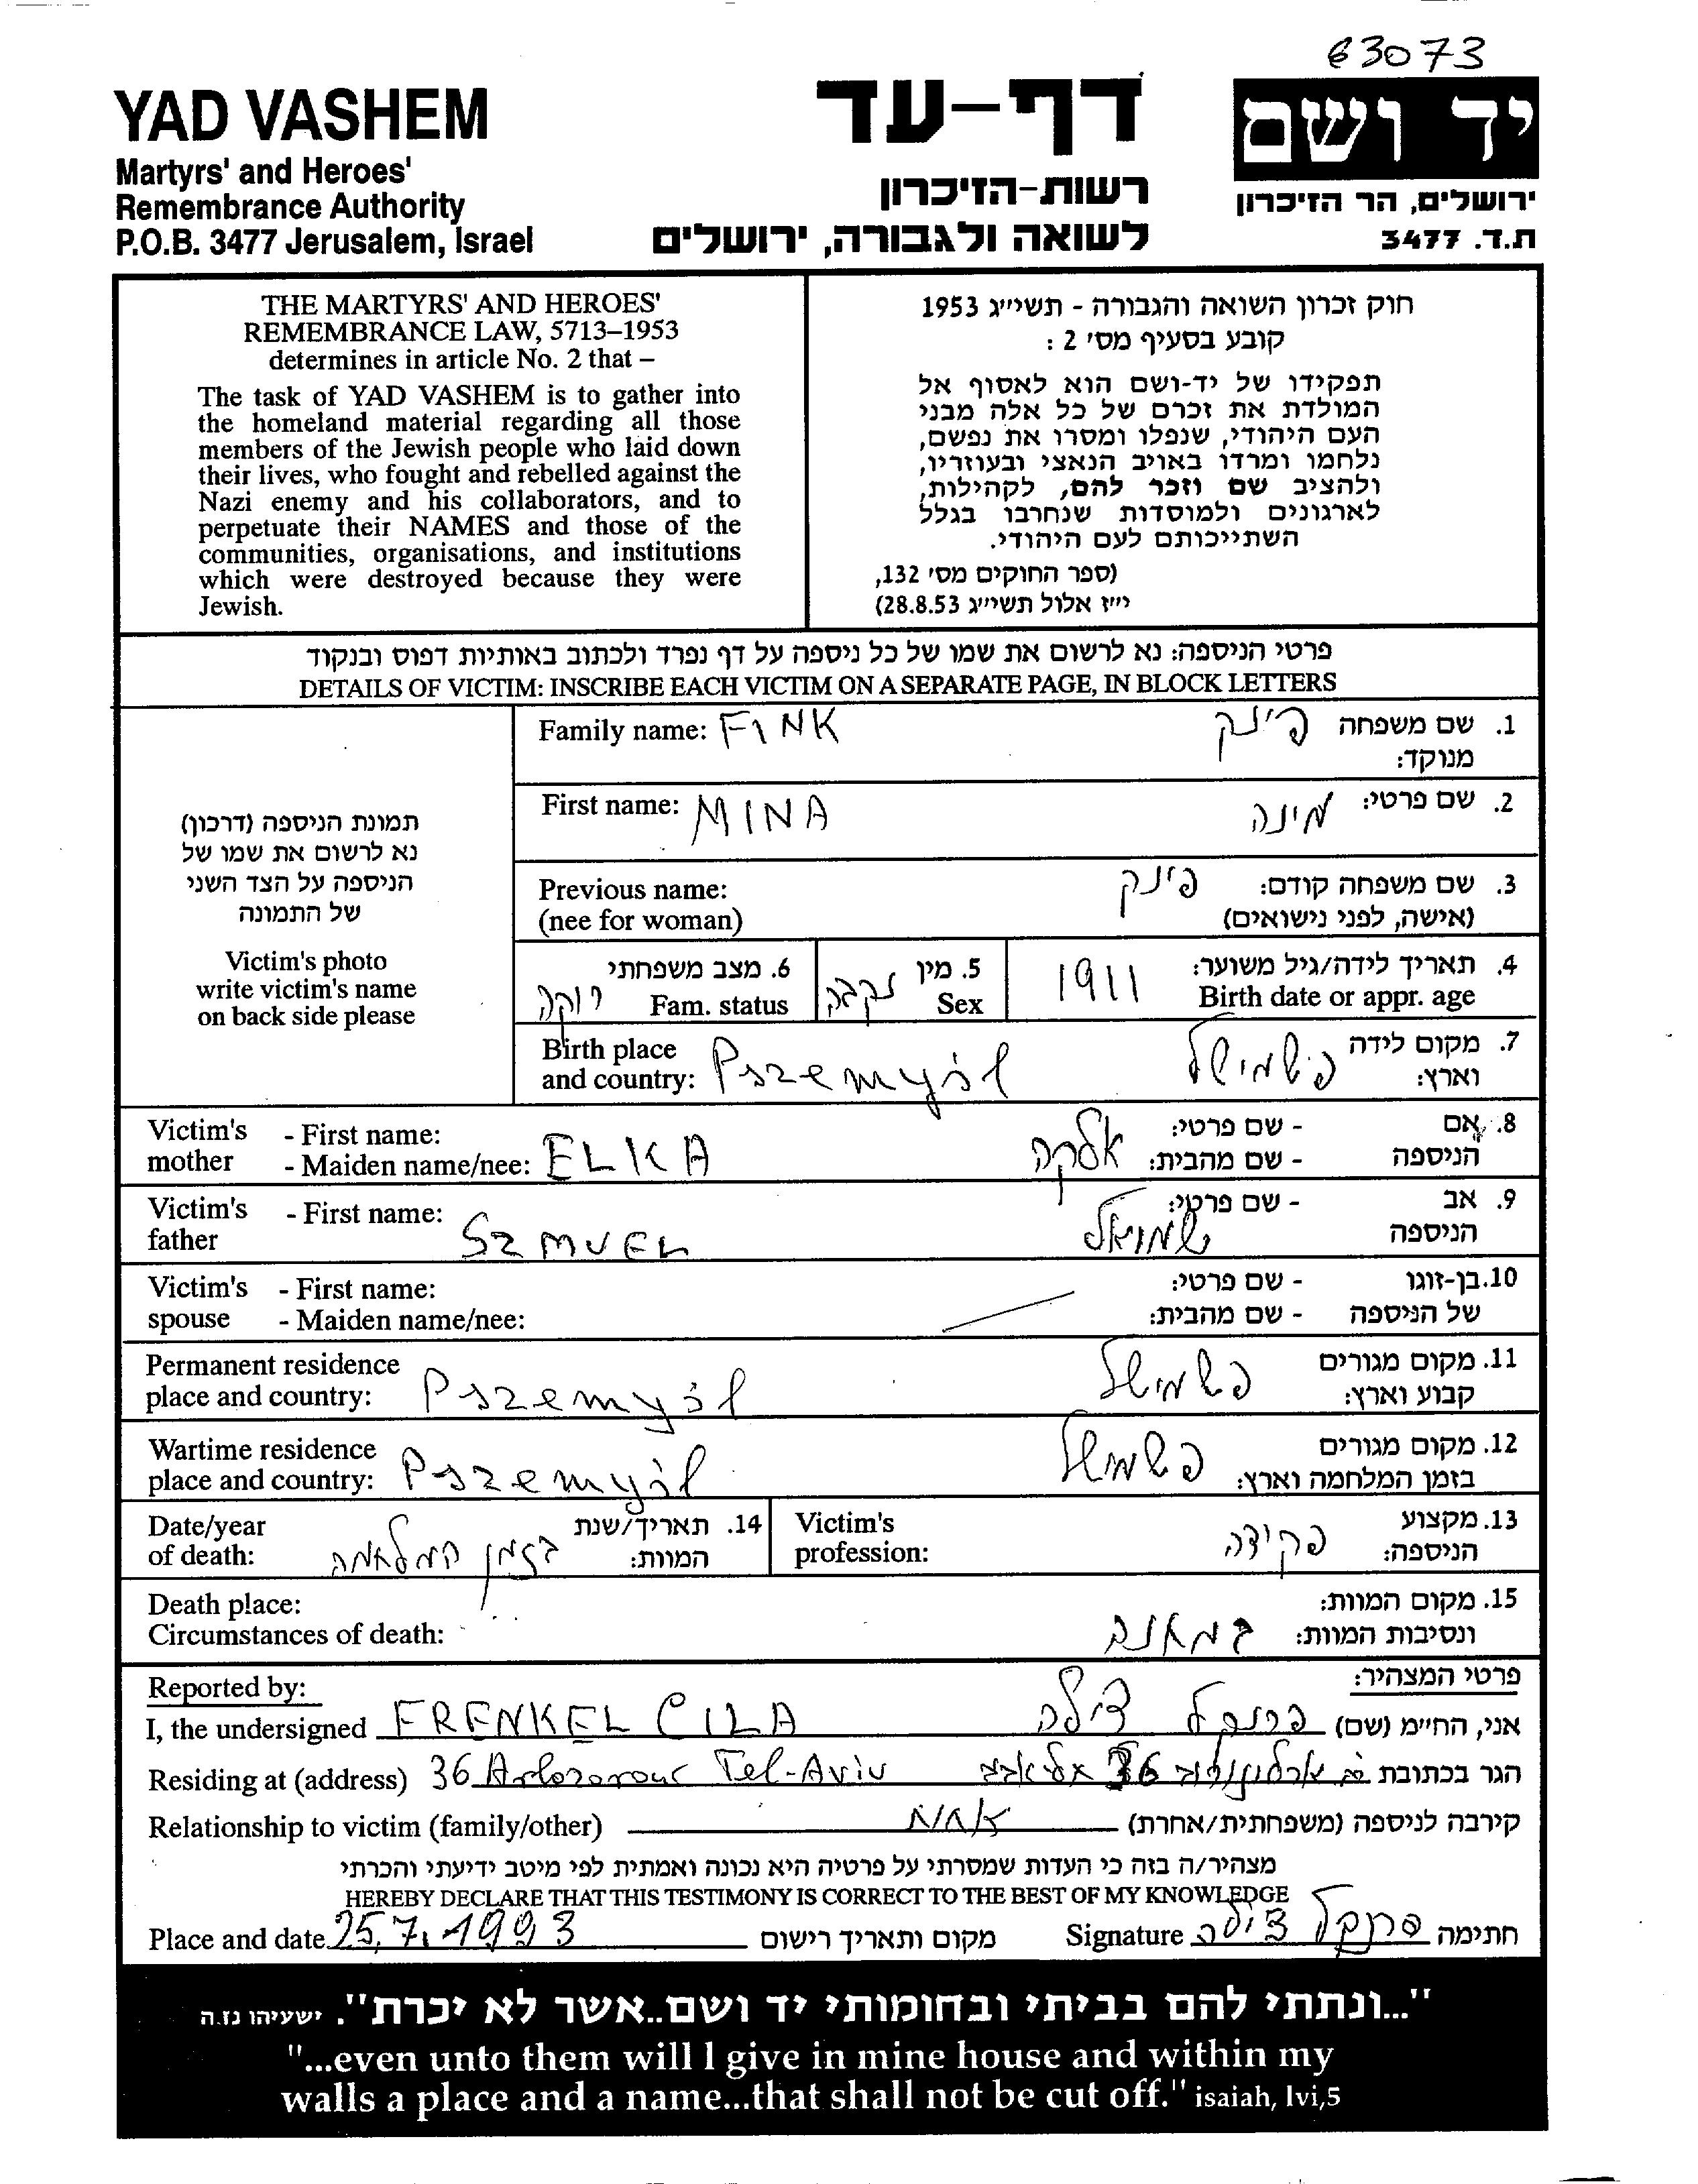 63073
YAD VASHEM
Martyrs' and Heroes'
Remembrance Authority
P.O.B. 3477 Jerusalem, Israel
דף-עד
רשות-הזיכרון
לשואה ולגבורה, ירושלים
יד ושם
ירושלים, הר הזיכרון
ת.ד. 3477
THE MARTYRS' AND HEROES'
REMEMBRANCE LAW, 5713–1953
determines in article No. 2 that –
The task of YAD VASHEM is to gather into
the homeland material regarding all those
members of the Jewish people who laid down
their lives, who fought and rebelled against the
Nazi enemy and his collaborators, and to
perpetuate their NAMES and those of the
communities, organisations, and institutions
which were destroyed because they were
Jewish.
חוק זכרון השואה והגבורה - תשי״ג 1953
קובע בסעיף מס׳ 2 :
תפקידו של יד-ושם הוא לאסוף אל
המולדת את זכרם של כל אלה מבני
העם היהודי, שנפלו ומסרו את נפשם,
נלחמו ומרדו באויב הנאצי ובעוזריו,
ולהציב שם וזכר להם, לקהילות,
לארגונים ולמוסדות שנחרבו בגלל
השתייכותם לעם היהודי.
(ספר החוקים מס׳ 132,
י״ז אלול תשי״ג 28.8.53)
פרטי הניספה: נא לרשום את שמו של כל ניספה על דף נפרד ולכתוב באותיות דפוס ובנקוד
DETAILS OF VICTIM: INSCRIBE EACH VICTIM ON A SEPARATE PAGE, IN BLOCK LETTERS
תמונת הניספה (דרכון)
נא לרשום את שמו של
הניספה על הצד השני
של התמונה
Victim's photo
write victim's name
on back side please
Family name: FINK
1. שם משפחה מנוקד: פינק
First name: MINA
2. שם פרטי: מינה
Previous name:
(nee for woman)
3. שם משפחה קודם: פינק
(אישה, לפני נישואים)
4. תאריך לידה/גיל משוער:
Birth date or appr. age 1911
5. מין
Sex נקבה
6. מצב משפחתי
Fam. status רווקה
Birth place
and country: Pszemyśl
7. מקום לידה
וארץ: פשמישל
Victim's mother - First name:
- Maiden name/nee: ELKA
8. אם הניספה - שם פרטי:
- שם מהבית: אלקה
Victim's father - First name: SZMUEL
9. אב הניספה - שם פרטי: שמואל
Victim's spouse - First name:
- Maiden name/nee:
10. בן-זוגו של הניספה - שם פרטי:
- שם מהבית:
Permanent residence
place and country: Pszemyśl
11. מקום מגורים
קבוע וארץ: פשמישל
Wartime residence
place and country: Pszemyśl
12. מקום מגורים
בזמן המלחמה וארץ: פשמישל
Date/year
of death:
14. תאריך/שנת
המוות: בזמן המלחמה
Victim's
profession:
13. מקצוע
הניספה: פקידה
Death place:
Circumstances of death:
15. מקום המוות:
ונסיבות המוות: במחנה
Reported by:
פרטי המצהיר:
I, the undersigned FRENKEL CILA
אני, החי״מ (שם) פרנקל צילה
Residing at (address) 36 Arlozorow Tel-Aviv
הגר בכתובת
Relationship to victim (family/other)
קירבה לניספה (משפחתית/אחרת)
מצהיר/ה בזה כי העדות שמסרתי על פרטיה היא נכונה ואמתית לפי מיטב ידיעתי והכרתי
HEREBY DECLARE THAT THIS TESTIMONY IS CORRECT TO THE BEST OF MY KNOWLEDGE
Place and date 25.7.1993 מקום ותאריך רישום
Signature פרנקל צילה חתימה
"...ונתתי להם בביתי ובחומותי יד ושם..אשר לא יכרת". ישעיהו נז.ה
"...even unto them will I give in mine house and within my
walls a place and a name...that shall not be cut off." isaiah, lvi,5